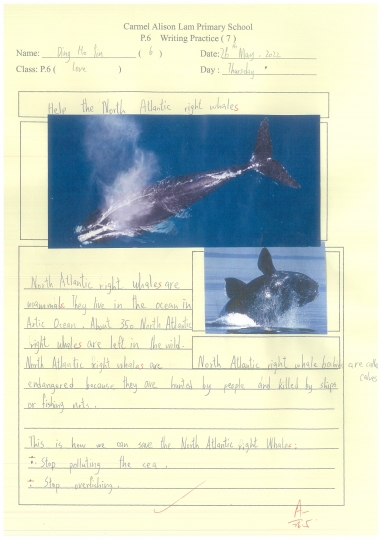 Carmel Alison Lam Primary School
P.6 Writing Practice ( 7 )
Name: Ding Ho ( 6 ) Date: 26th May, 2022
Class: P.6 ( Love ) Day: Thursday
Help the North Atlantic right whales
North Atlantic right whales are
mammals. They live in the ocean in
Artic Ocean. About 350 North Atlantic
right whales are left in the wild.
North Atlantic right whales are
North Atlantic right whale babies are calle
calves
endangered because they are hunted by people and killed by ships
or fishing nets.
This is how we can save the North Atlantic right Whales:
Stop polluting the sea.
Stop overfishing.
A-